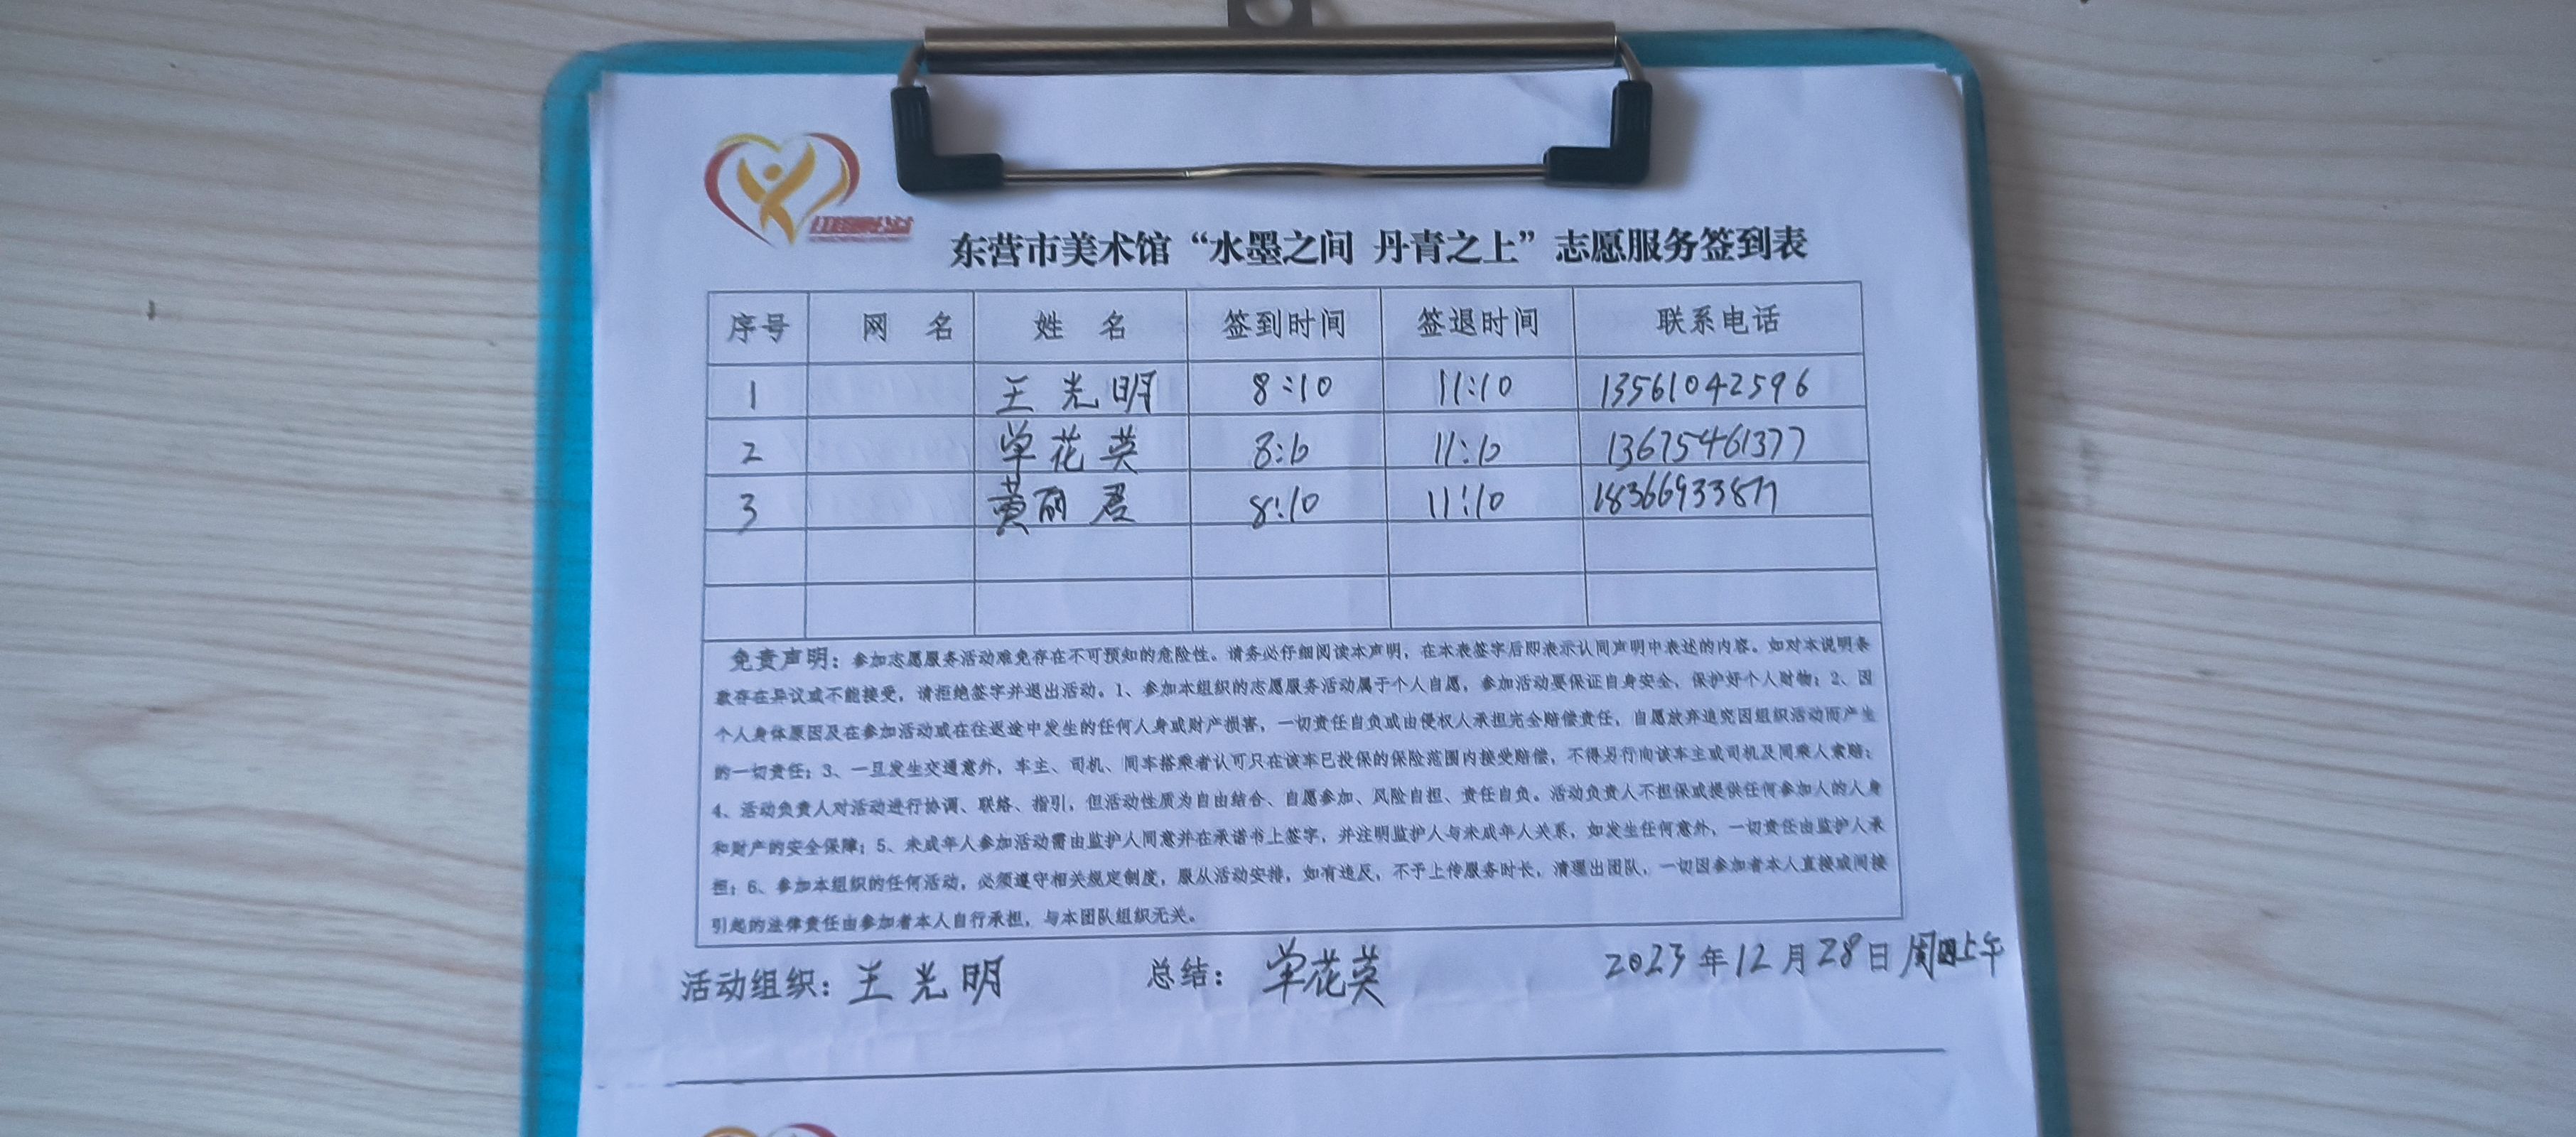 东营市美术馆“水墨之间 丹青之上”志愿服务签到表
序号 网 名 姓 名 签到时间 签退时间 联系电话
1 王光明 8:10 11:10 13561042596
2 单花英 8:10 11:10 13675461377
3 黄丽君 8:10 11:10 18366933877
免责声明：参加志愿服务活动难免存在不可预知的危险性。请务必仔细阅读本声明，在本表签字后即表示认同声明中表述的内容。如对本说明条
款存在异议或不能接受，请拒绝签字并退出活动。1、参加本组织的志愿服务活动属于个人自愿，参加活动要保证自身安全，保护好个人财物；2、因
个人身体原因及在参加活动或在往返途中发生的任何人身或财产损害，一切责任自负或由侵权人承担完全赔偿责任，自愿放弃追究因组织活动而产生
的一切责任；3、一旦发生交通意外，车主、司机、同车搭乘者认可只在该车已投保的保险范围内接受赔偿，不得另行向该车主或司机及同乘人索赔；
4、活动负责人对活动进行协调、联络、指引，但活动性质为自由结合、自愿参加、风险自担、责任自负。活动负责人不担保或提供任何参加人的人身
和财产的安全保障；5、未成年人参加活动需由监护人同意并在承诺书上签字，并注明监护人与未成年人关系，如发生任何意外，一切责任由监护人承
担；6、参加本组织的任何活动，必须遵守相关规定制度，服从活动安排，如有违反，不予上传服务时长，清理出团队，一切因参加者本人直接或间接
引起的法律责任由参加者本人自行承担，与本团队组织无关。
活动组织：王光明 总结：单花英 2023年12月28日周四上午